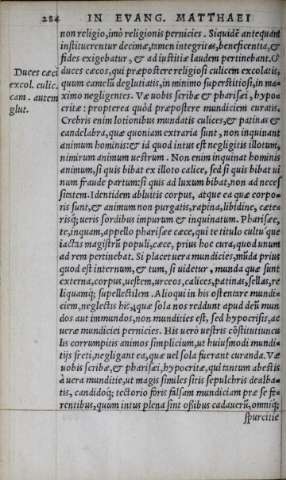 284 IN EVANG. MATTHAEI
non religio, imò religionis pernicies. Siquidē antequā
instituerentur decimæ, tamen integritas, beneficentia, &
fides exigebatur, & ad iustitiæ laudem pertinebant. O
Duces cæci duces cæcos, qui præpostere religiosi culicem excolatis,
excol. culic. quum camelū deglutiatis, in minimo superstitiosi, in ma
cam. autem ximo negligentes. Væ vobis scribæ & pharisæi, hypo-
glut. critæ: propterea quòd præpostere mundiciem curatis.
Crebris enim lotionibus mundatis culices, & patinas &
candelabra, quæ quoniam extraria sunt, non inquinant
animum hominis: & id quod intus est negligitis illotum,
nimirum animum uestrum. Non enim inquinat hominis
animum, si quis bibat ex illoto calice, sed si quis bibat ui
num fraude partum: si quis ad luxum bibat, non ad neces
sitatem. Identidem abluitis corpus, atque ea quæ corpo-
ris sunt, & animum non purgatis, rapina, libidine, cæte
risq; ueris sordibus impurum & inquinatum. Pharisæe,
te, inquam, appello pharisæe cæce, qui te titulo cultu que
iactas magistrū populi, cæce, prius hoc cura, quod unum
ad rem pertinebat. Si placet uera mundicies, mūda prius
quod est internum, & tum, si uidetur, munda quæ sunt
externa, corpus, uestem, urceos, calices, patinas, sellas, re
liquamq; supellectilem. Alioqui in his ostentare mundi-
ciem, neglectis his, quæ sola nos reddunt apud deū mun
dos aut immundos, non mundicies est, sed hypocrisis, ac
ueræ mundiciei pernicies. His uero uestris cōstitutiuncu
lis corrumpitis animos simplicium, ut huiusmodi mundi-
tijs freti, negligant ea, quæ uel sola fuerant curanda. Væ
uobis scribæ, & pharisæi, hypocritæ, qui tantum abestis
à uera munditie, ut magis similes sitis sepulchris dealba-
tis, candidoq; tectorio foris falsam mundiciam præ se fe-
rentibus, quum intus plena sint ossibus cadauerū, omniq;
spurcitie